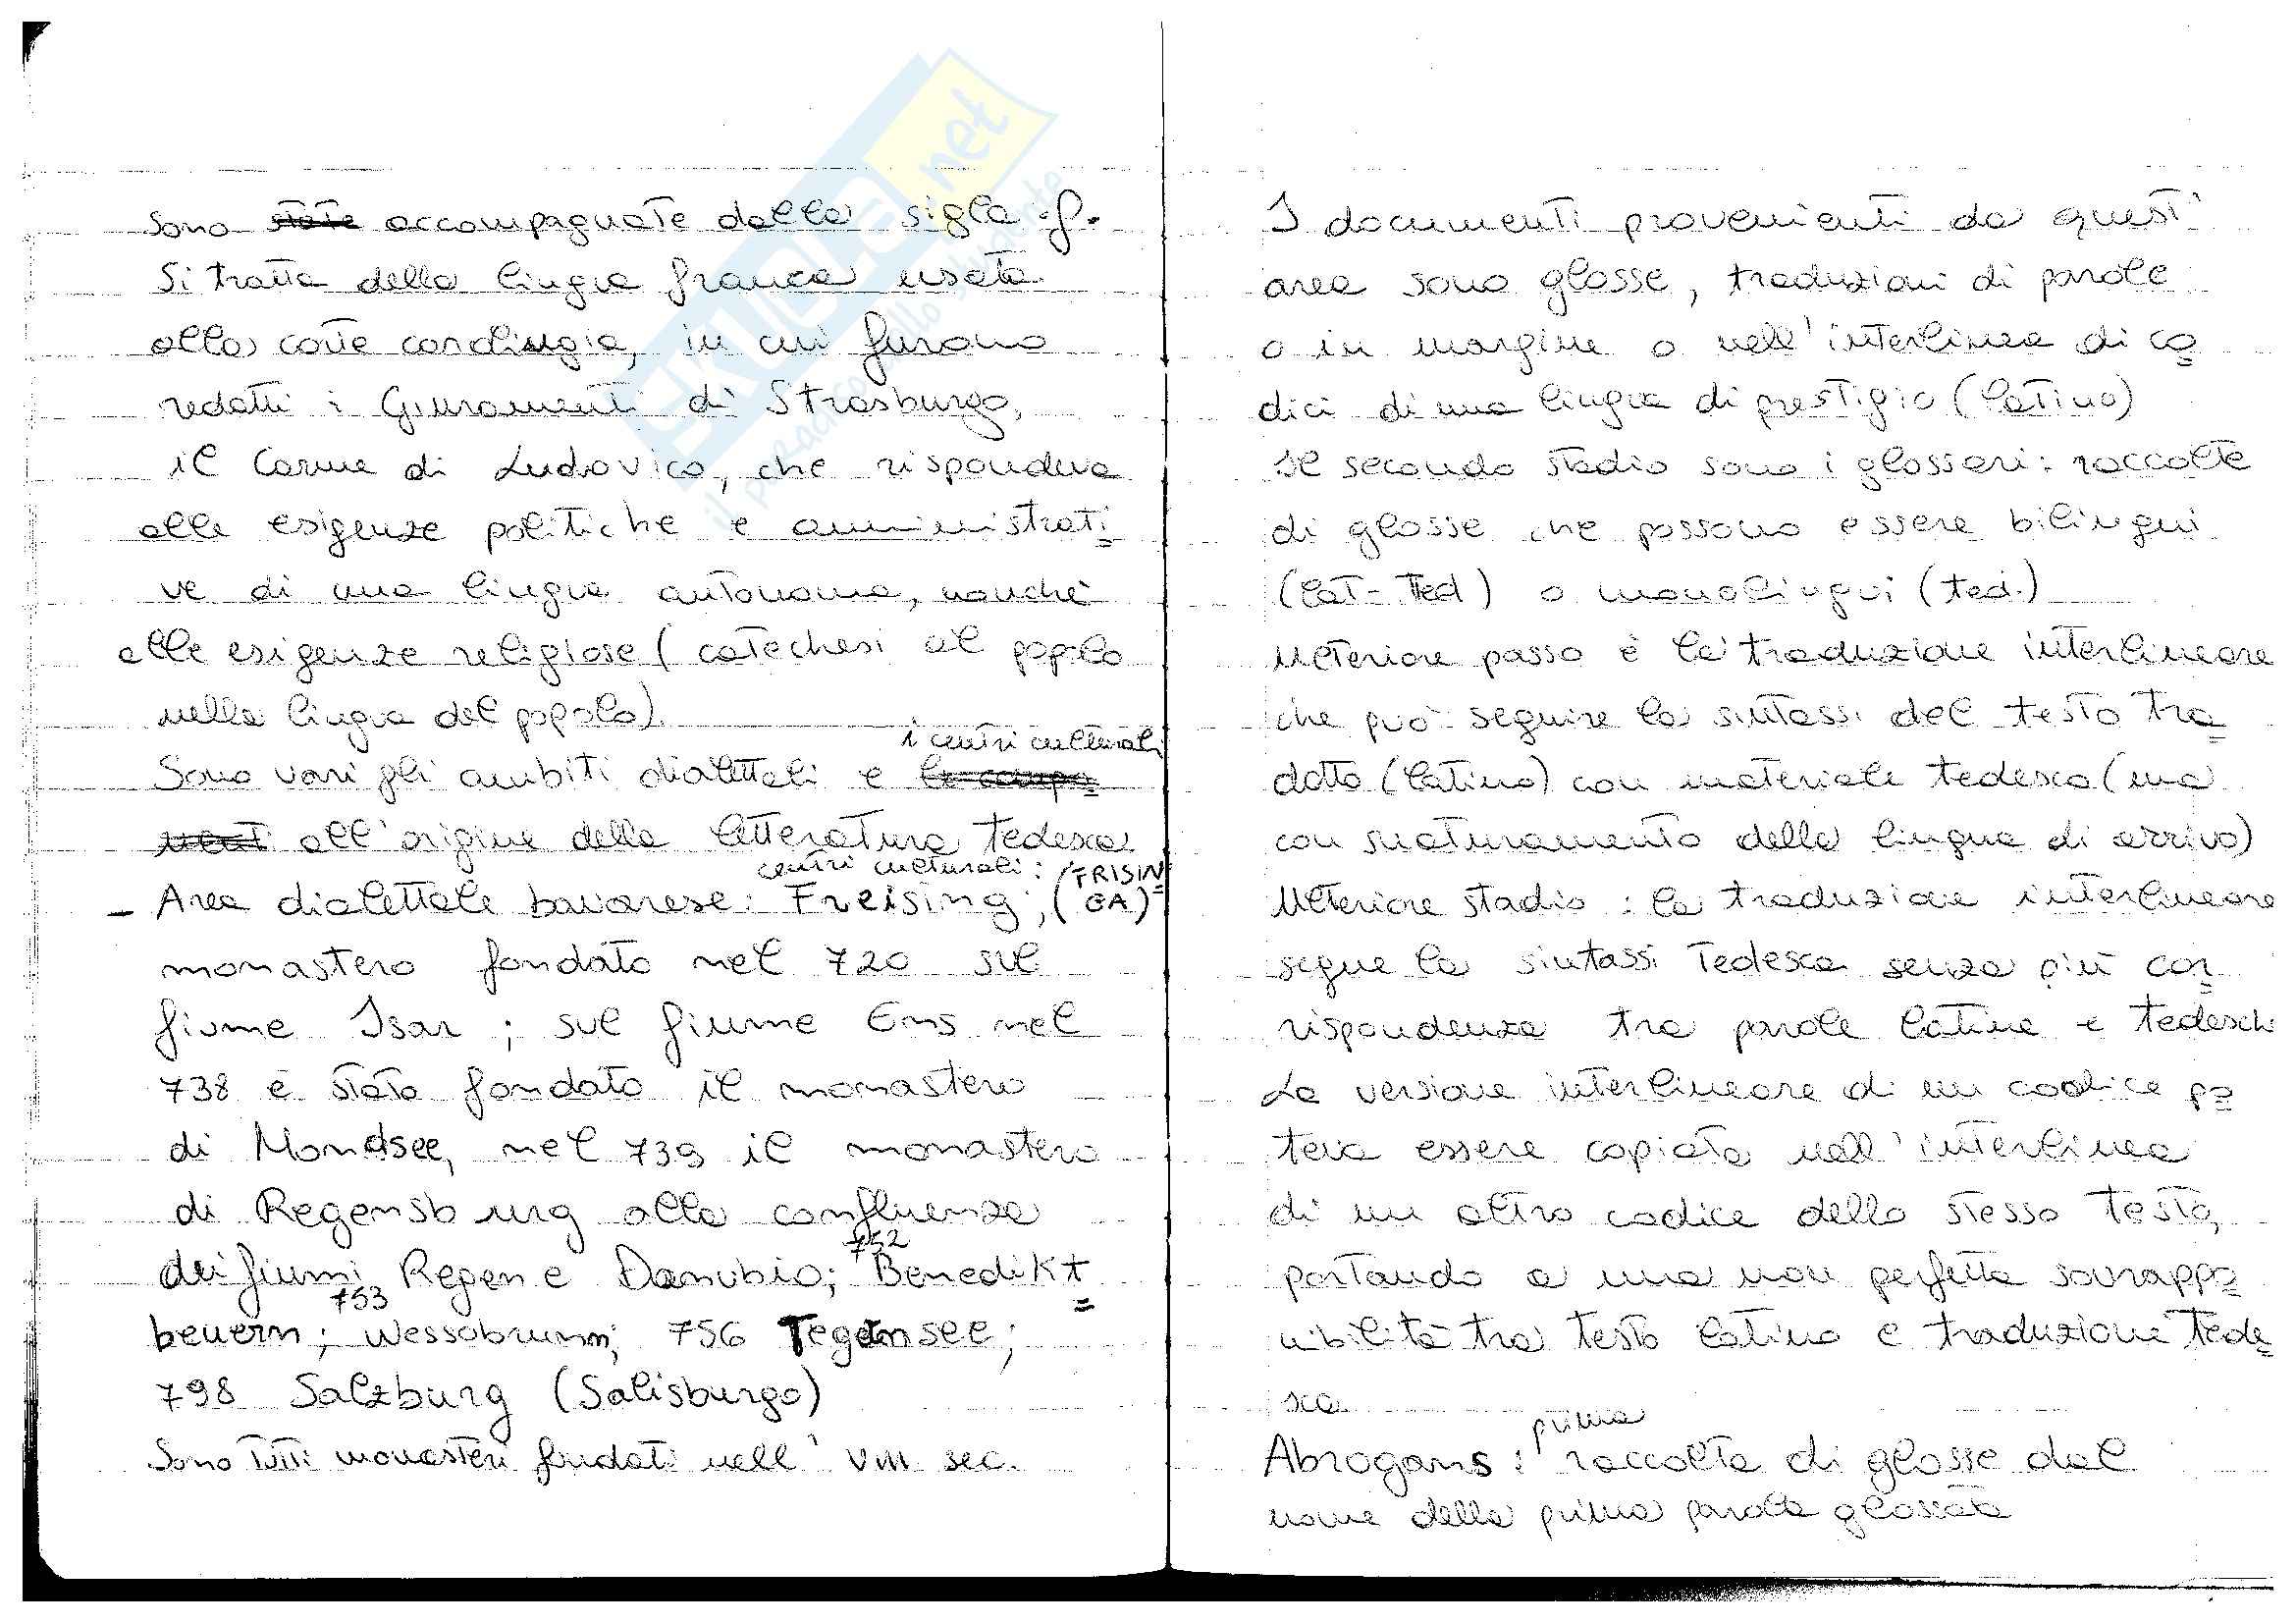 sono state accompagnate dalla sigla f.
Si tratta della lingua franca usata
alla corte carolingia, in cui furono
redatti i Giuramenti di Strasburgo,
il Carme di Ludovico, che rispondeva
alle esigenze politiche e amministrati=
ve di una lingua autonoma, nonché
alle esigenze religiose (catechesi al popolo
nella lingua del popolo).
i centri culturali
Sono vari gli ambiti dialettali e
all'origine della letteratura tedesca.
centri culturali: (FRISIN=
- Area dialettale bavarese: Freising, GA)
monastero fondato nel 720 sul
fiume Isar; sul fiume Ems nel
738 è stato fondato il monastero
di Mondsee, nel 739 il monastero
di Regensburg alla confluenza
752
dei fiumi Regen e Danubio; Benedikt=
753
beuern; Wessobrunn; 756 Tegernsee;
798 Salzburg (Salisburgo)
Sono tutti monasteri fondati nell' VIII sec.
I documenti provenienti da quest'
area sono glosse, traduzioni di parole
o in margine o nell'interlinea di co=
dici di una lingua di prestigio (latino)
Il secondo stadio sono i glossari: raccolte
di glosse che possono essere bilingui
(lat-ted) o monolingui (ted.)
Ulteriore passo è la traduzione interlineare
che può seguire la sintassi del testo tra=
dotto (latino) con materiale tedesco (ma
con snaturamento della lingua di arrivo)
Ulteriore stadio: la traduzione interlineare
segue la sintassi tedesca senza più cor=
rispondenza tra parole latine e tedesch
La versione interlineare di un codice po=
teva essere copiata nell'interlinea
di un altro codice dello stesso testo,
portando a una non perfetta sovrappo=
nibilità tra testo latino e traduzione tede=
sca.
prima
Abrogans: raccolta di glosse dal
nome della prima parola glossata